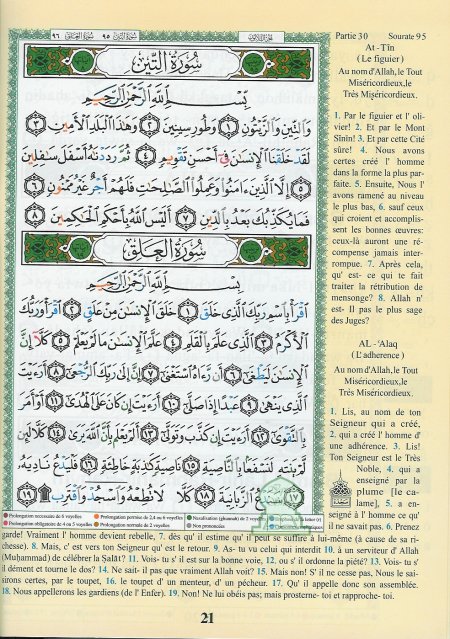 ٩٦ سورة العلق ٩٥ سورة التين الجزء الثلاثون
سُورَةُ التِّينِ
بِسْمِ اللَّهِ الرَّحْمَٰنِ الرَّحِيمِ
وَالتِّينِ وَالزَّيْتُونِ ١ وَطُورِ سِينِينَ ٢ وَهَٰذَا الْبَلَدِ الْأَمِينِ ٣
لَقَدْ خَلَقْنَا الْإِنسَٰنَ فِي أَحْسَنِ تَقْوِيمٍ ٤ ثُمَّ رَدَدْنَٰهُ أَسْفَلَ سَٰفِلِينَ
٥ إِلَّا الَّذِينَ ءَامَنُوا وَعَمِلُوا الصَّٰلِحَٰتِ فَلَهُمْ أَجْرٌ غَيْرُ مَمْنُونٍ ٦
فَمَا يُكَذِّبُكَ بَعْدُ بِالدِّينِ ٧ أَلَيْسَ اللَّهُ بِأَحْكَمِ الْحَٰكِمِينَ ٨
سُورَةُ العَلَقِ
بِسْمِ اللَّهِ الرَّحْمَٰنِ الرَّحِيمِ
اقْرَأْ بِاسْمِ رَبِّكَ الَّذِي خَلَقَ ١ خَلَقَ الْإِنسَٰنَ مِنْ عَلَقٍ ٢ اقْرَأْ وَرَبُّكَ
الْأَكْرَمُ ٣ الَّذِي عَلَّمَ بِالْقَلَمِ ٤ عَلَّمَ الْإِنسَٰنَ مَا لَمْ يَعْلَمْ ٥ كَلَّا إِنَّ
الْإِنسَٰنَ لَيَطْغَىٰ ٦ أَن رَّءَاهُ اسْتَغْنَىٰ ٧ إِنَّ إِلَىٰ رَبِّكَ الرُّجْعَىٰ ٨ أَرَءَيْتَ
الَّذِي يَنْهَىٰ ٩ عَبْدًا إِذَا صَلَّىٰ ١٠ أَرَءَيْتَ إِن كَانَ عَلَى الْهُدَىٰ ١١ أَوْ أَمَرَ
بِالتَّقْوَىٰ ١٢ أَرَءَيْتَ إِن كَذَّبَ وَتَوَلَّىٰ ١٣ أَلَمْ يَعْلَم بِأَنَّ اللَّهَ يَرَىٰ ١٤ كَلَّا لَئِن
لَّمْ يَنتَهِ لَنَسْفَعًا بِالنَّاصِيَةِ ١٥ نَاصِيَةٍ كَٰذِبَةٍ خَاطِئَةٍ ١٦ فَلْيَدْعُ نَادِيَهُ
١٧ سَنَدْعُ الزَّبَانِيَةَ ١٨ كَلَّا لَا تُطِعْهُ وَاسْجُدْ وَاقْتَرِب ۩ ١٩
Prolongation nécessaire de 6 voyelles
Prolongation permise de 2,4 ou 6 voyelles
Nasalisation (ghunnah) de 2 voyelles
Prolongation obligatoire de 4 ou 5 voyelles
Prolongation normale de 2 voyelles
Non prononcées
Partie 30 Sourate 95
At - Tîn
(Le figuier)
Au nom d'Allah, le Tout
Miséricordieux, le
Très Miséricordieux.
1. Par le figuier et l' oli-
vier! 2. Et par le Mont
Sînîn! 3. Et par cette Cité
sûre! 4. Nous avons
certes créé l' homme
dans la forme la plus par-
faite. 5. Ensuite, Nous l'
avons ramené au niveau
le plus bas, 6. sauf ceux
qui croient et accomplis-
sent les bonnes œuvres:
ceux-là auront une ré-
compense jamais inter-
rompue. 7. Après cela,
qu' est- ce qui te fait
traiter la rétribution de
mensonge? 8. Allah n'
est- Il pas le plus sage
des Juges?
AL - 'Alaq
(L'adherence)
Au nom d'Allah, le Tout
Miséricordieux, le
Très Miséricordieux.
1. Lis, au nom de ton
Seigneur qui a créé,
2. qui a créé l' homme d'
une adhérence. 3. Lis!
Ton Seigneur est le Très
Noble, 4. qui a
enseigné par la
plume [le ca-
lame], 5. a en-
seigné à l' homme ce qu'
il ne savait pas. 6. Prenez
garde! Vraiment l' homme devient rebelle, 7. dès qu' il estime qu' il peut se suffire à lui-même (à cause de sa ri-
chesse). 8. Mais, c' est vers ton Seigneur qu' est le retour. 9. As- tu vu celui qui interdit 10. à un serviteur d' Allah
(Muḥammad) de célébrer la Ṣalât? 11. Vois- tu s' il est sur la bonne voie, 12. ou s' il ordonne la piété? 13. Vois- tu s'
il dément et tourne le dos? 14. Ne sait- il pas que vraiment Allah voit? 15. Mais non! S' il ne cesse pas, Nous le sai-
sirons certes, par le toupet, 16. le toupet d' un menteur, d' un pécheur. 17. Qu' il appelle donc son assemblée.
18. Nous appellerons les gardiens (de l' Enfer). 19. Non! Ne lui obéis pas; mais prosterne- toi et rapproche- toi.
21